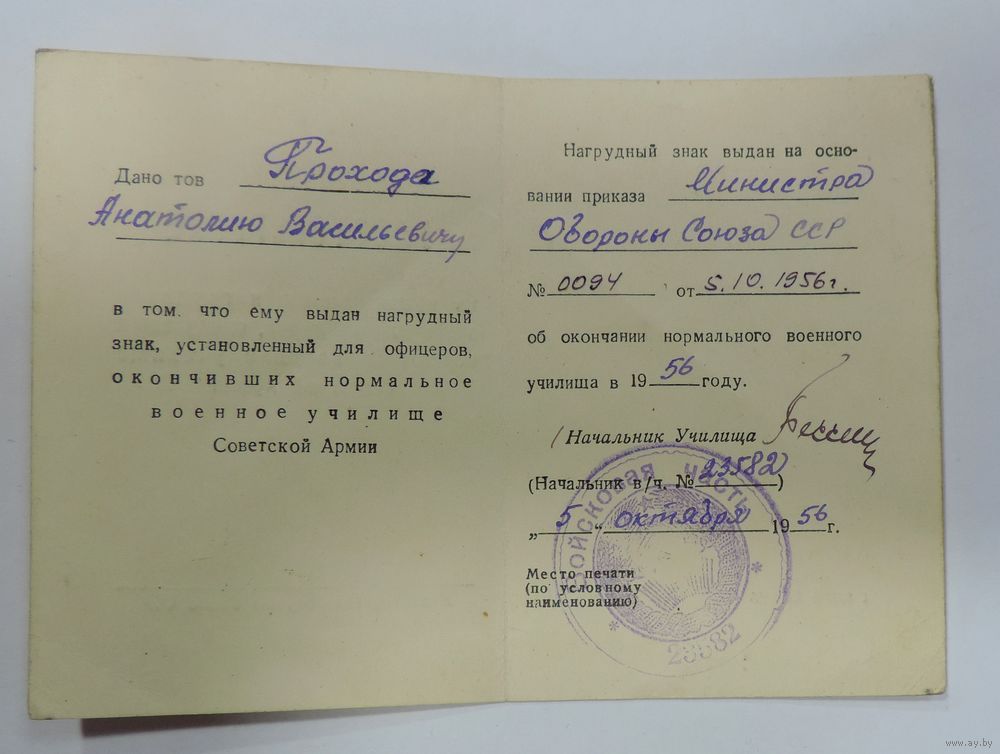 Дано тов Прохода
Анатолию Васильевичу
в том. что ему выдан нагрудный
знак, установленный для офицеров,
окончивших нормальное
военное училище
Советской Армии
Нагрудный знак выдан на осно-
вании приказа Министра
Обороны Союза ССР
№ 0094 от 5.10.1956г.
об окончании нормального военного
училища в 1956 году.
(Начальник Училища
(Начальник в/ч. № 23582)
„5“ октября 1956 г.
Место печати
(по условному
наименованию)
Войсковая часть
* 23582 *
www.ay.by